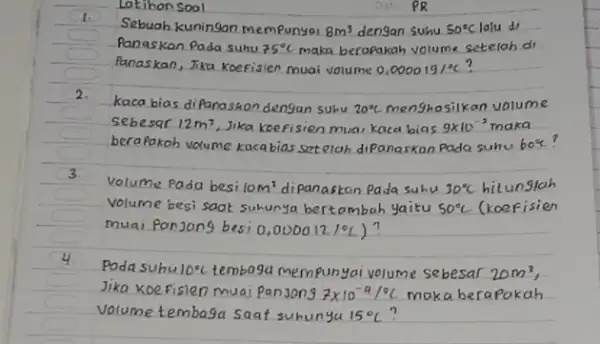 Latihan Soal PR
1. Sebuah kuningan mempunyai 8m³ dengan suhu 50°C lalu di
Panaskan Pada suhu 75°C maka berapakah volume setelah di
Panaskan, Jika Koefisien muai volume 0,000019/°C ?
2. kaca bias dipanaskan dengan suhu 20°C menghasilkan volume
sebesar 12m³, Jika koefisien muai kaca bias 9x10⁻³ maka
berapakah volume kaca bias setelah dipanaskan Pada suhu 60°C ?
3. volume Pada besi 10m³ dipanaskan Pada suhu 30°C hitunglah
volume besi saat suhunya bertambah yaitu 50°C (koefisien
muai Panjang besi 0,000012/°C) ?
4 Pada suhu 10°C tembaga mempunyai volume sebesar 20m³,
Jika koefisien muai Panjang 7x10⁻⁴/°C maka berapakah
volume tembaga saat suhunya 15°C ?